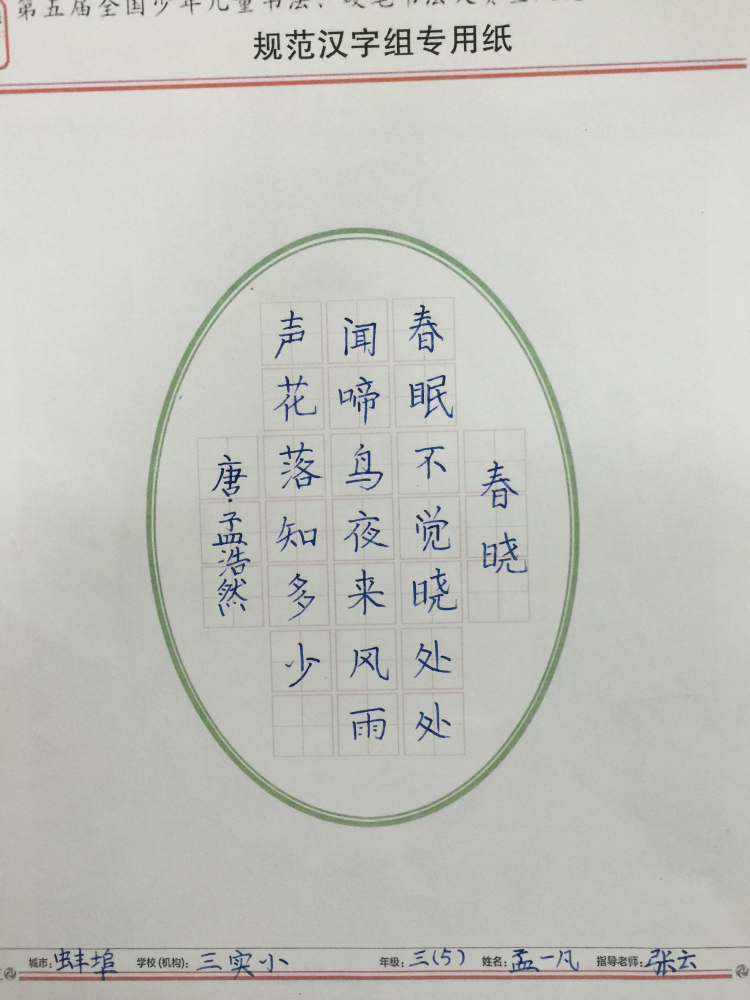 第五届全国少年儿童书法、硬笔书法大赛
规范汉字组专用纸
春晓
春眠不觉晓处处
闻啼鸟夜来风雨
声花落知多少
唐·孟浩然
城市：蚌埠 学校(机构)：三实小 年级：三(5) 姓名：孟一凡 指导老师：张云